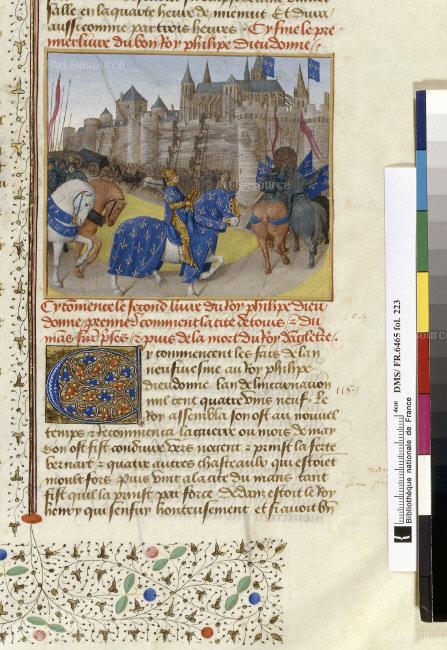 salle en laquarte heure de mienuit Et dura
aussi comme par trois heures. Cy fine le pre
mier livre du bon Roy phelipe Dieudonne
Cy comence le second livre du Roy phelipe dieu
donne premier comment la cite de tours et du
mans fut prise et puis de la mort du Roy dangleterre
Cy commencent les fais de lan
neufviesme au Roy phelipe
dieudonne lan de lincarnation
mil cent quatre vins neuf. Le
Roy assembla son ost au nouvel
temps recommenca la guerre ou mois de may
son ost fist conduire vers nogent et prinst la ferte
bernart et quatre autres chasteaulx qui estoient
moult fors puis vint a la cite du mans tant
fist quil la prinst par force dedans estoit le Roy
henry qui senfuy honteusement et si avoit bn
1189
DMS/ FR.6465 fol. 223
4cm
Bibliothèque nationale de France
Art Resource